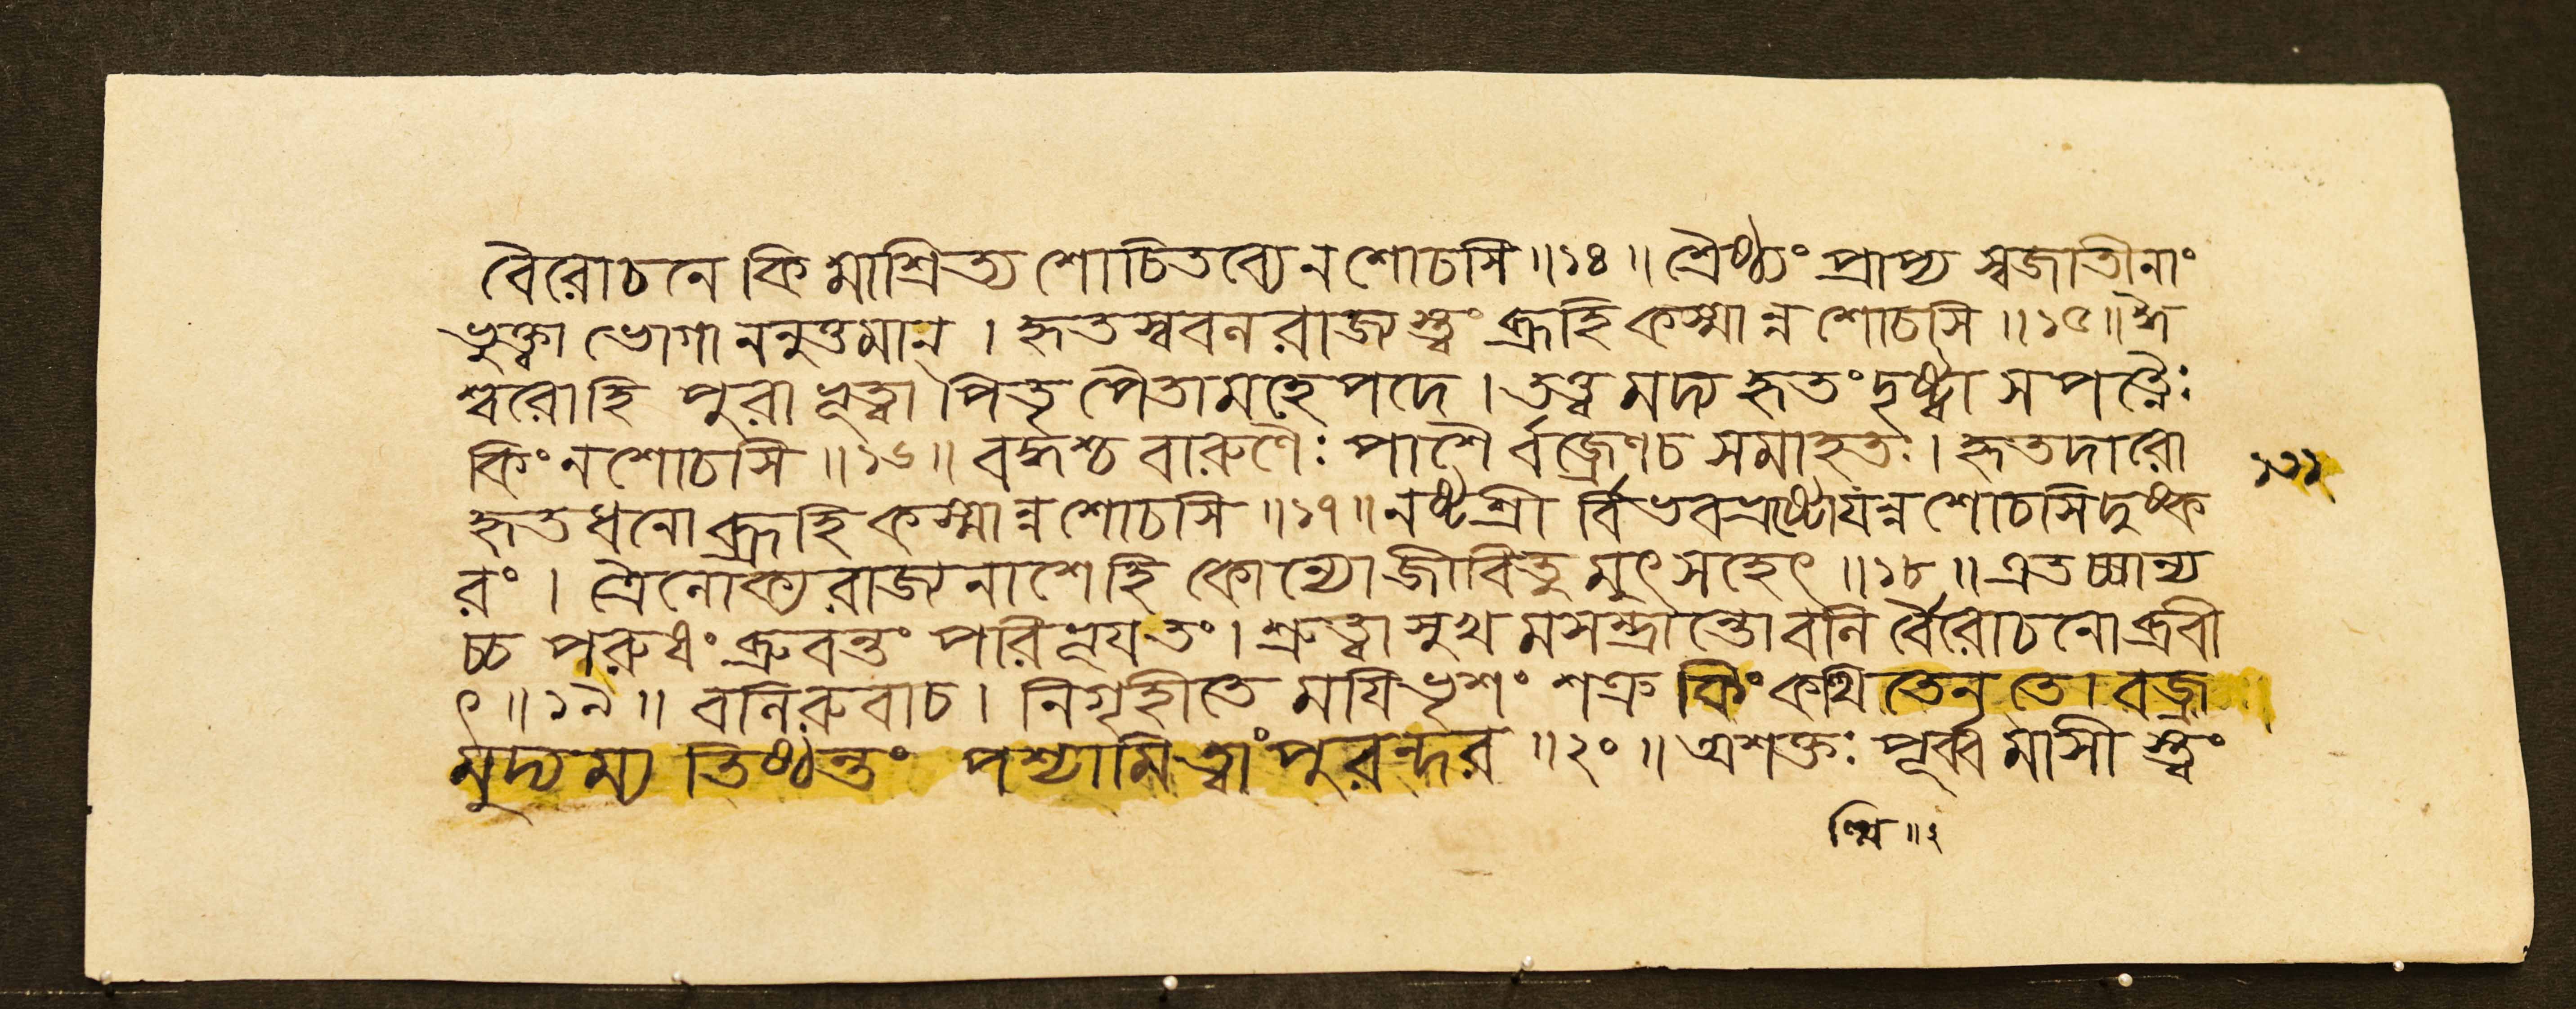 বৈরোচনে কিমাশ্রিত্য শোচিতব্যেন শোচসি ॥১৪॥ শ্রৈষ্ঠ্যং প্রাপ্য স্বজাতীনাং
ভুক্ত্বা ভোগাননুত্তমান্ । হৃতস্ববলরাজ্যস্ত্বং ব্রূহি কস্মান্ন শোচসি ॥১৫॥ ঈ
শ্বরোহি পুরা ভূত্বা পিতৃপৈতামহে পদে । তত্ত্বমদ্য হৃতং দৃষ্ট্বা সপত্নৈঃ
কিং ন শোচসি ॥১৬॥ বদ্ধশ্চ বারুণৈঃ পাশৈর্বজ্রেণ চ সমাহতঃ । হৃতদারো
হৃতধনো ব্রূহি কস্মান্ন শোচসি ॥১৭॥ নষ্টশ্রীর্বিভবভ্রষ্টো যন্ন শোচসি দুষ্ক
রং । ত্রৈলোক্যরাজ্যনাশে হি কোন্যো জীবিতুমুৎসহেৎ ॥১৮॥ এতচ্চান্য
চ্চ পরুষং ব্রুবন্তং পরিভূয় তং । শ্রুত্বা সুখমসম্ভ্রান্তো বলির্বৈরোচনোব্রবী
ৎ ॥১৯॥ বলিরুবাচ । নিগৃহীতে ময়ি ভৃশং শত্রু কিং কত্থিতেন তে । বজ্র
মুদ্যম্য তিষ্ঠন্তং পশ্যামি ত্বাং পুরন্দর ॥২০॥ অশক্তঃ পূর্ব্বমাসীস্ত্বং